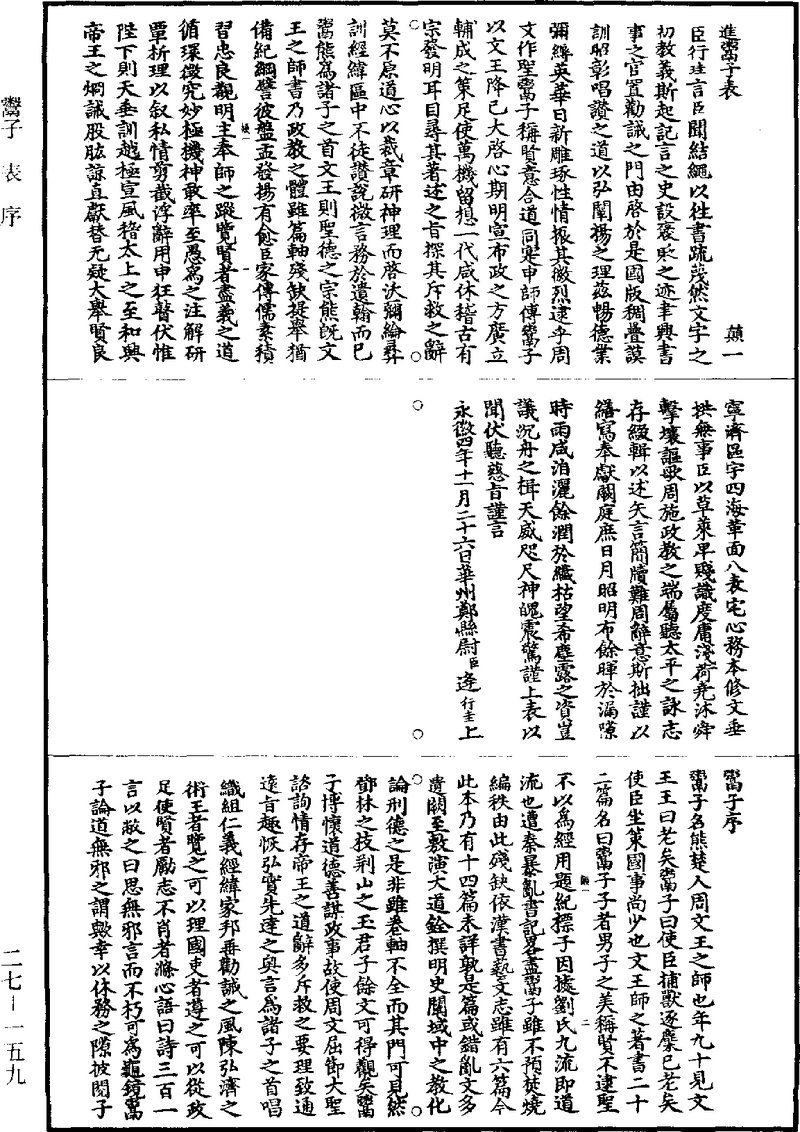 進鬻子表
顛一
臣行珪言臣聞結繩以往書疏蔑然文字之
初教義斯起記言之史設褒貶之迹聿興書
事之官置勸誡之門由啓於是國版稠疊謨
訓昭彰唱讚之道以弘闡揚之理茲暢德業
彌縟英華日新雕琢性情振其徽烈逮乎周
文作聖鬻子稱賢意合道同寔申師傅鬻子
以文王降已大啓心期明宣布政之方廣立
輔成之策足使萬機留想一代咸休稽古有
宗發明耳目尋其著述之旨探其斥救之辭
莫不原道心以裁章研神理而啓沃彌綸彝
訓經緯區中不徒讚說微言務於遺翰而已
鬻熊爲諸子之首文王則聖德之宗熊旣文
王之師書乃政教之體雖篇軸殘缺提舉猶
備紀綱譬彼盤盂發揚有愈臣家傳儒素積
習忠良觀明主奉師之蹤覽賢者盡義之道
循環徵究妙極機神敢率至愚爲之注解研
覃析理以叙私情剪截浮辭用申狂瞽伏惟
陛下則天垂訓越極宣風稽太上之至和興
帝王之炯誡股肱諒直獻替无疑大舉賢良
寧濟區宇四海革面八表宅心務本修文垂
拱無事臣以草萊卑賤識度庸淺荷堯沐舜
擊壤謳歌周施政教之端屬聽太平之詠志
存綴輯以述矢言簡牘難周辭意斯拙謹以
繕寫奉獻闕庭庶日月昭明布餘暉於漏隙
時雨咸洎灑餘潤於纖枯望希塵露之資豈
議沉舟之楫天威咫尺神魄震驚謹上表以
聞伏聽慈旨謹言
永徽四年十一月二十六日華州鄭縣尉臣逄行圭上
鬻子序
鬻子名熊楚人周文王之師也年九十見文
王王曰老矣鬻子曰使臣捕獸逐麋已老矣
使臣坐策國事尚少也文王師之著書二十
二篇名曰鬻子子者男子之美稱賢不逮聖
不以爲經用題紀標子因據劉氏九流即道
流也遭秦暴亂書記畧盡鬻子雖不預焚燒
編秩由此殘缺依漢書藝文志雖有六篇今
此本乃有十四篇未詳孰是篇或錯亂文多
遺闕至敷演大道銓撰明史闡域中之教化
論刑德之是非雖卷軸不全而其門可見然
鄧林之枝荆山之玉君子餘文可得觀矣鬻
子博懷道德善謀政事故使周文屈節大聖
諮詢情存帝王之道辭多斥救之要理致通
遠旨趣恢弘實先達之奥言爲諸子之首唱
織組仁義經緯家邦垂勸誡之風陳弘濟之
術王者覽之可以理國吏者遵之可以從政
足使賢者勵志不肖者滌心語曰詩三百一
言以蔽之曰思無邪言而不朽可爲龜鏡鬻
子論道無邪之謂歟幸以休務之隙披閱子
鬻子 表 序
二七—一五九